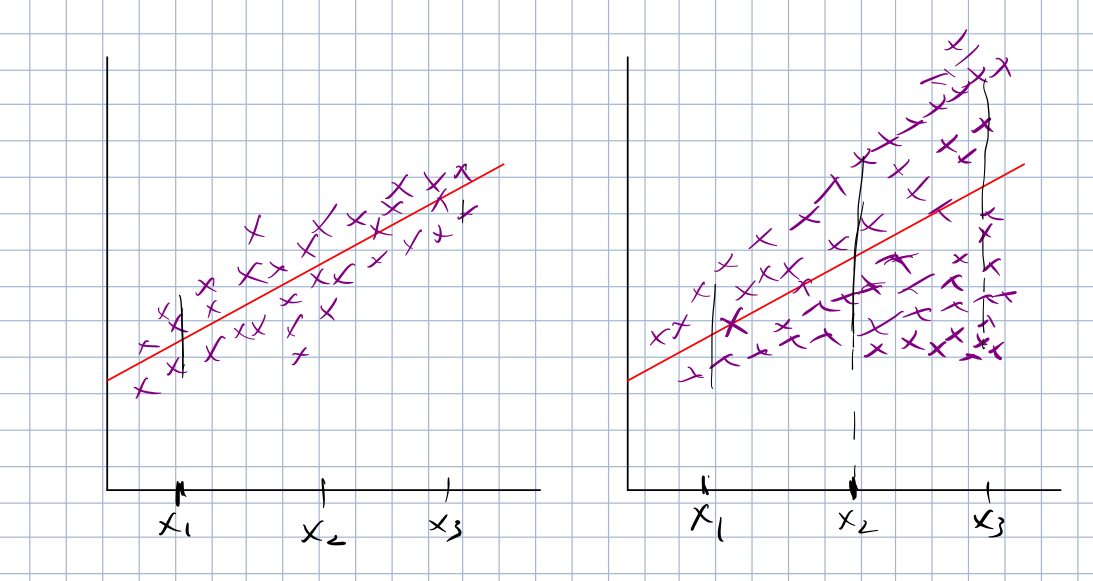 x₁ x₂ x₃
x₁ x₂ x₃